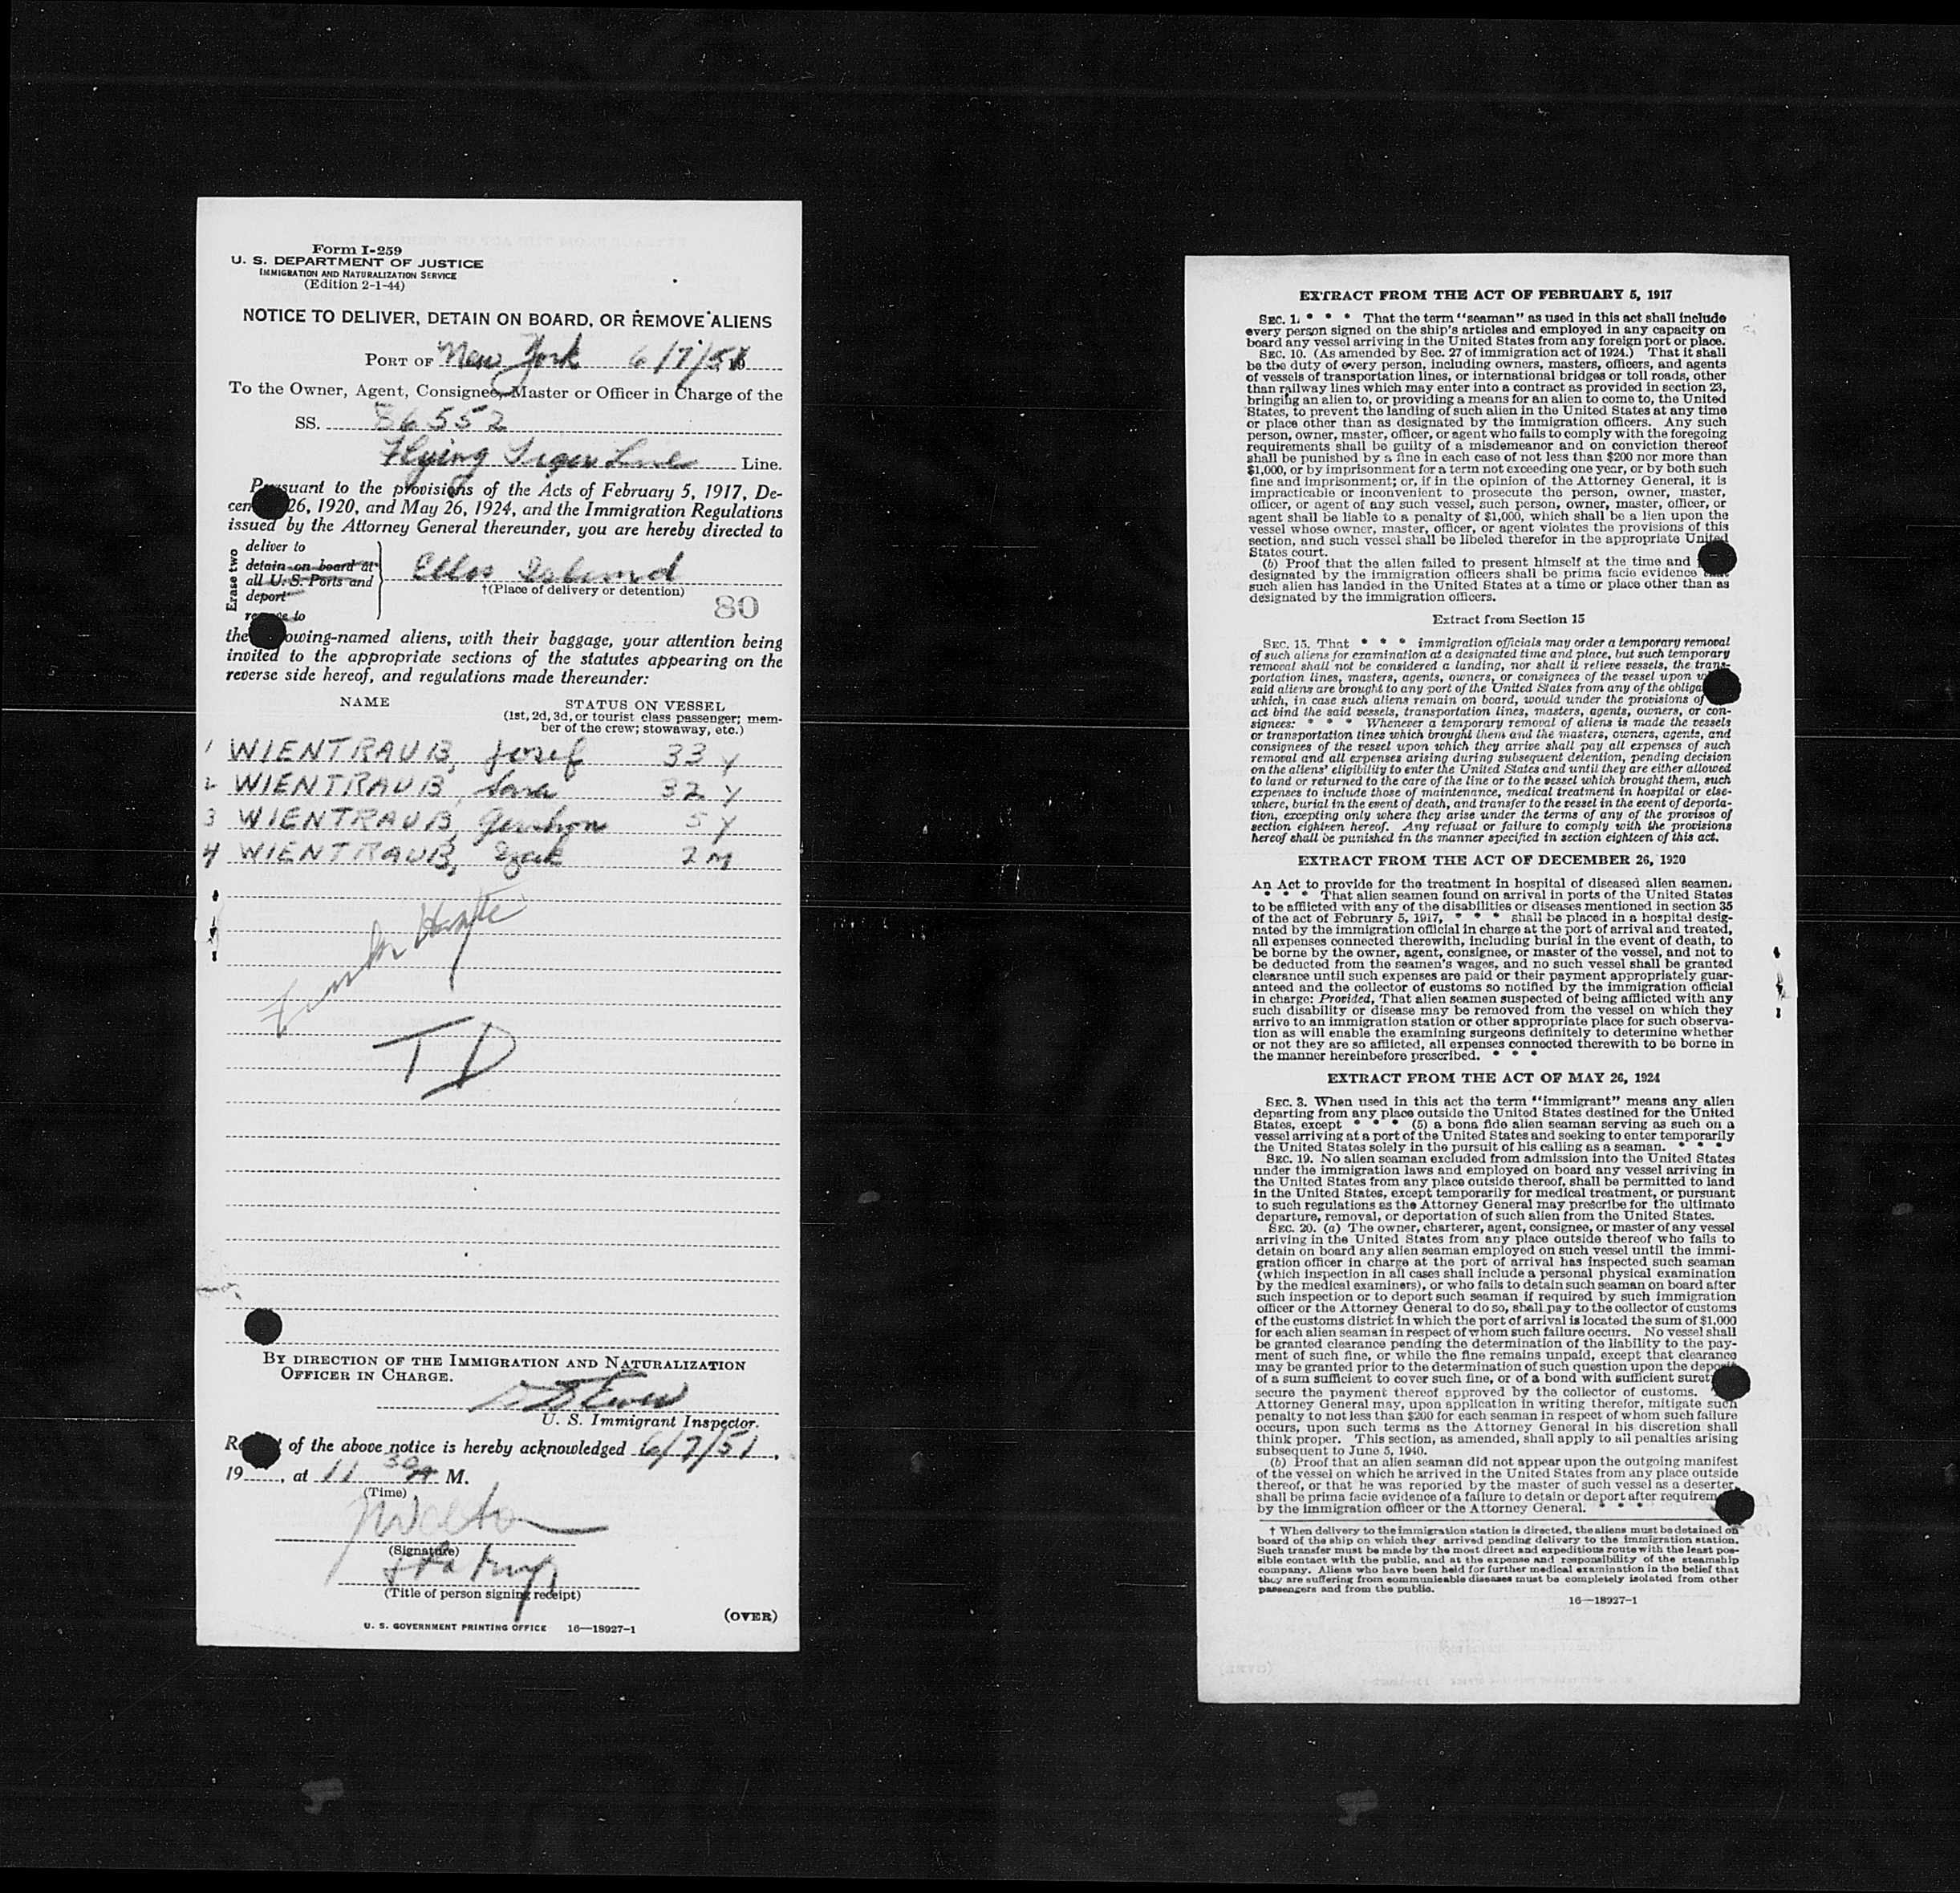 Form I-259
U. S. DEPARTMENT OF JUSTICE
IMMIGRATION AND NATURALIZATION SERVICE
(Edition 2-1-44)
NOTICE TO DELIVER, DETAIN ON BOARD, OR REMOVE ALIENS
PORT OF New York 6/7/51
To the Owner, Agent, Consignee, Master or Officer in Charge of the
SS. 86552
Flying Tiger Line Line.
Pursuant to the provisions of the Acts of February 5, 1917, De-
cem 26, 1920, and May 26, 1924, and the Immigration Regulations
issued by the Attorney General thereunder, you are hereby directed to
Erase two
deliver to
detain on board at
all U. S. Ports and
deport
remove to
Ellis Island
†(Place of delivery or detention)
80
the owing-named aliens, with their baggage, your attention being
invited to the appropriate sections of the statutes appearing on the
reverse side hereof, and regulations made thereunder:
NAME STATUS ON VESSEL
(1st, 2d, 3d, or tourist class passenger; mem-
ber of the crew; stowaway, etc.)
1 WIENTRAUB, Josef 33 Y
2 WIENTRAUB, Sara 32 Y
3 WIENTRAUB, Gershon 5 Y
4 WIENTRAUB, 2 M
TD
BY DIRECTION OF THE IMMIGRATION AND NATURALIZATION
OFFICER IN CHARGE.
U. S. Immigrant Inspector.
R t of the above notice is hereby acknowledged 6/7/51,
19 , at 11 30 A M.
(Time)
(Signature)
(Title of person signing receipt)
(OVER)
U. S. GOVERNMENT PRINTING OFFICE 16—18927-1
EXTRACT FROM THE ACT OF FEBRUARY 5, 1917
SEC. 1. * * * That the term "seaman" as used in this act shall include
every person signed on the ship's articles and employed in any capacity on
board any vessel arriving in the United States from any foreign port or place.
SEC. 10. (As amended by Sec. 27 of immigration act of 1924.) That it shall
be the duty of every person, including owners, masters, officers, and agents
of vessels of transportation lines, or international bridges or toll roads, other
than railway lines which may enter into a contract as provided in section 23,
bringing an alien to, or providing a means for an alien to come to, the United
States, to prevent the landing of such alien in the United States at any time
or place other than as designated by the immigration officers. Any such
person, owner, master, officer, or agent who fails to comply with the foregoing
requirements shall be guilty of a misdemeanor and on conviction thereof
shall be punished by a fine in each case of not less than $200 nor more than
$1,000, or by imprisonment for a term not exceeding one year, or by both such
fine and imprisonment; or, if in the opinion of the Attorney General, it is
impracticable or inconvenient to prosecute the person, owner, master,
officer, or agent of any such vessel, such person, owner, master, officer, or
agent shall be liable to a penalty of $1,000, which shall be a lien upon the
vessel whose owner, master, officer, or agent violates the provisions of this
section, and such vessel shall be libeled therefor in the appropriate United
States court.
(b) Proof that the alien failed to present himself at the time and
designated by the immigration officers shall be prima facie evidence that
such alien has landed in the United States at a time or place other than as
designated by the immigration officers.
Extract from Section 15
SEC. 15. That * * * immigration officials may order a temporary removal
of such aliens for examination at a designated time and place, but such temporary
removal shall not be considered a landing, nor shall it relieve vessels, the trans-
portation lines, masters, agents, owners, or consignees of the vessel upon w
said aliens are brought to any port of the United States from any of the obliga
which, in case such aliens remain on board, would under the provisions of
act bind the said vessels, transportation lines, masters, agents, owners, or con-
signees: * * * Whenever a temporary removal of aliens is made the vessels
or transportation lines which brought them and the masters, owners, agents, and
consignees of the vessel upon which they arrive shall pay all expenses of such
removal and all expenses arising during subsequent detention, pending decision
on the aliens' eligibility to enter the United States and until they are either allowed
to land or returned to the care of the line or to the vessel which brought them, such
expenses to include those of maintenance, medical treatment in hospital or else-
where, burial in the event of death, and transfer to the vessel in the event of deporta-
tion, excepting only where they arise under the terms of any of the provisos of
section eighteen hereof. Any refusal or failure to comply with the provisions
hereof shall be punished in the manner specified in section eighteen of this act.
EXTRACT FROM THE ACT OF DECEMBER 26, 1920
An Act to provide for the treatment in hospital of diseased alien seamen.
* * * That alien seamen found on arrival in ports of the United States
to be afflicted with any of the disabilities or diseases mentioned in section 35
of the act of February 5, 1917, * * * shall be placed in a hospital desig-
nated by the immigration official in charge at the port of arrival and treated,
all expenses connected therewith, including burial in the event of death, to
be borne by the owner, agent, consignee, or master of the vessel, and not to
be deducted from the seamen's wages, and no such vessel shall be granted
clearance until such expenses are paid or their payment appropriately guar-
anteed and the collector of customs so notified by the immigration official
in charge: Provided, That alien seamen suspected of being afflicted with any
such disability or disease may be removed from the vessel on which they
arrive to an immigration station or other appropriate place for such observa-
tion as will enable the examining surgeons definitely to determine whether
or not they are so afflicted, all expenses connected therewith to be borne in
the manner hereinbefore prescribed. * * *
EXTRACT FROM THE ACT OF MAY 26, 1924
SEC. 3. When used in this act the term "immigrant" means any alien
departing from any place outside the United States destined for the United
States, except * * * (5) a bona fide alien seaman serving as such on a
vessel arriving at a port of the United States and seeking to enter temporarily
the United States solely in the pursuit of his calling as a seaman. * * *
SEC. 19. No alien seaman excluded from admission into the United States
under the immigration laws and employed on board any vessel arriving in
the United States from any place outside thereof, shall be permitted to land
in the United States, except temporarily for medical treatment, or pursuant
to such regulations as the Attorney General may prescribe for the ultimate
departure, removal, or deportation of such alien from the United States.
SEC. 20. (a) The owner, charterer, agent, consignee, or master of any vessel
arriving in the United States from any place outside thereof who fails to
detain on board any alien seaman employed on such vessel until the immi-
gration officer in charge at the port of arrival has inspected such seaman
(which inspection in all cases shall include a personal physical examination
by the medical examiners), or who fails to detain such seaman on board after
such inspection or to deport such seaman if required by such immigration
officer or the Attorney General to do so, shall pay to the collector of customs
of the customs district in which the port of arrival is located the sum of $1,000
for each alien seaman in respect of whom such failure occurs. No vessel shall
be granted clearance pending the determination of the liability to the pay-
ment of such fine, or while the fine remains unpaid, except that clearance
may be granted prior to the determination of such question upon the deposit
of a sum sufficient to cover such fine, or of a bond with sufficient suret
secure the payment thereof approved by the collector of customs.
Attorney General may, upon application in writing therefor, mitigate such
penalty to not less than $200 for each seaman in respect of whom such failure
occurs, upon such terms as the Attorney General in his discretion shall
think proper. This section, as amended, shall apply to all penalties arising
subsequent to June 5, 1940.
(b) Proof that an alien seaman did not appear upon the outgoing manifest
of the vessel on which he arrived in the United States from any place outside
thereof, or that he was reported by the master of such vessel as a deserter,
shall be prima facie evidence of a failure to detain or deport after requirem
by the immigration officer or the Attorney General. * * *
† When delivery to the immigration station is directed, the aliens must be detained on
board of the ship on which they arrived pending delivery to the immigration station.
Such transfer must be made by the most direct and expeditious route with the least pos-
sible contact with the public, and at the expense and responsibility of the steamship
company. Aliens who have been held for further medical examination in the belief that
they are suffering from communicable diseases must be completely isolated from other
passengers and from the public.
16—18927-1